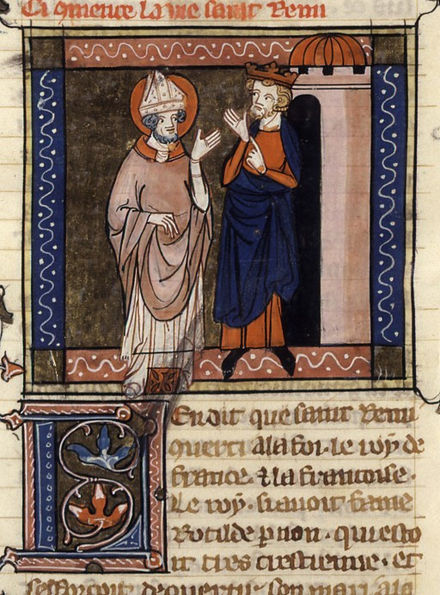 Ci 9mence La vie saint Remi
L en dit que saint Remi
9uerti ala foi . le roy de
france . & la francoise .
Le roy . si auoit feme
Rotilde p non . qui esto
it tres crestienne . et
sefforcoit de 9uertir son mari ala